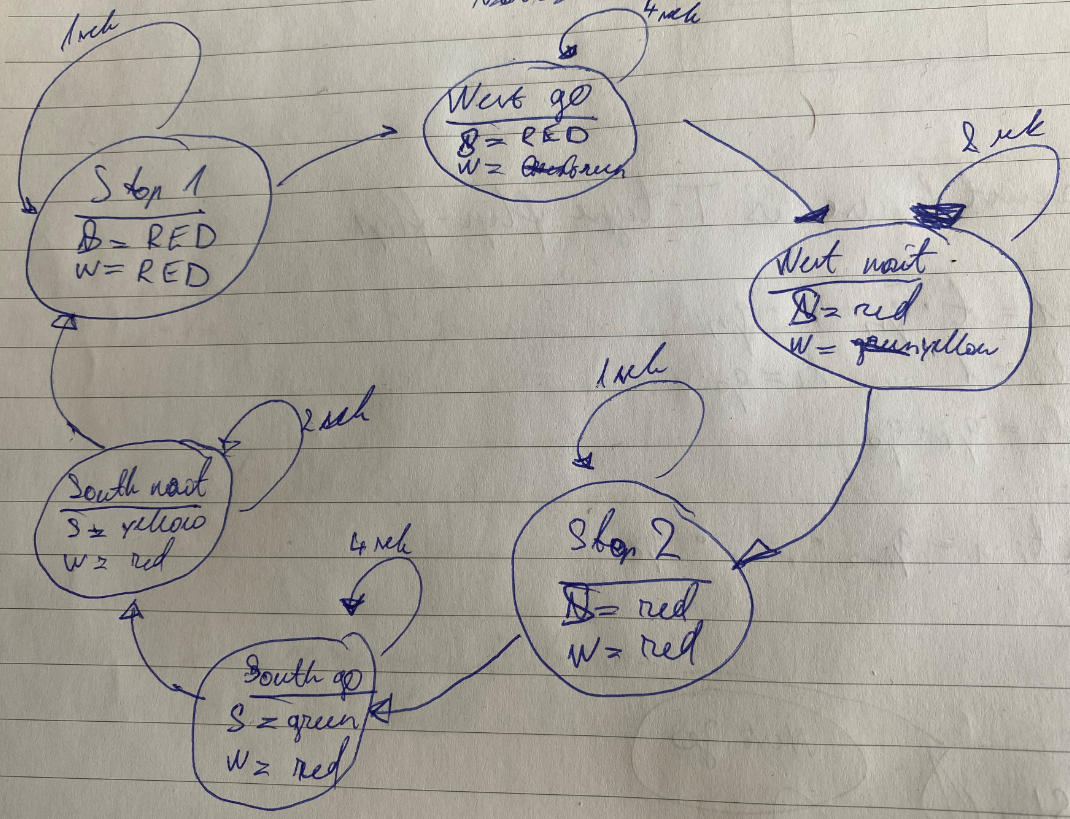 1 sek
4 sek
Stop 1
S = RED
W = RED
West go
S = RED
W = Green
2 sek
West wait
S = red
W = yellow
1 sek
Stop 2
S = red
W = red
4 sek
South go
S = green
W = red
2 sek
South wait
S = yellow
W = red